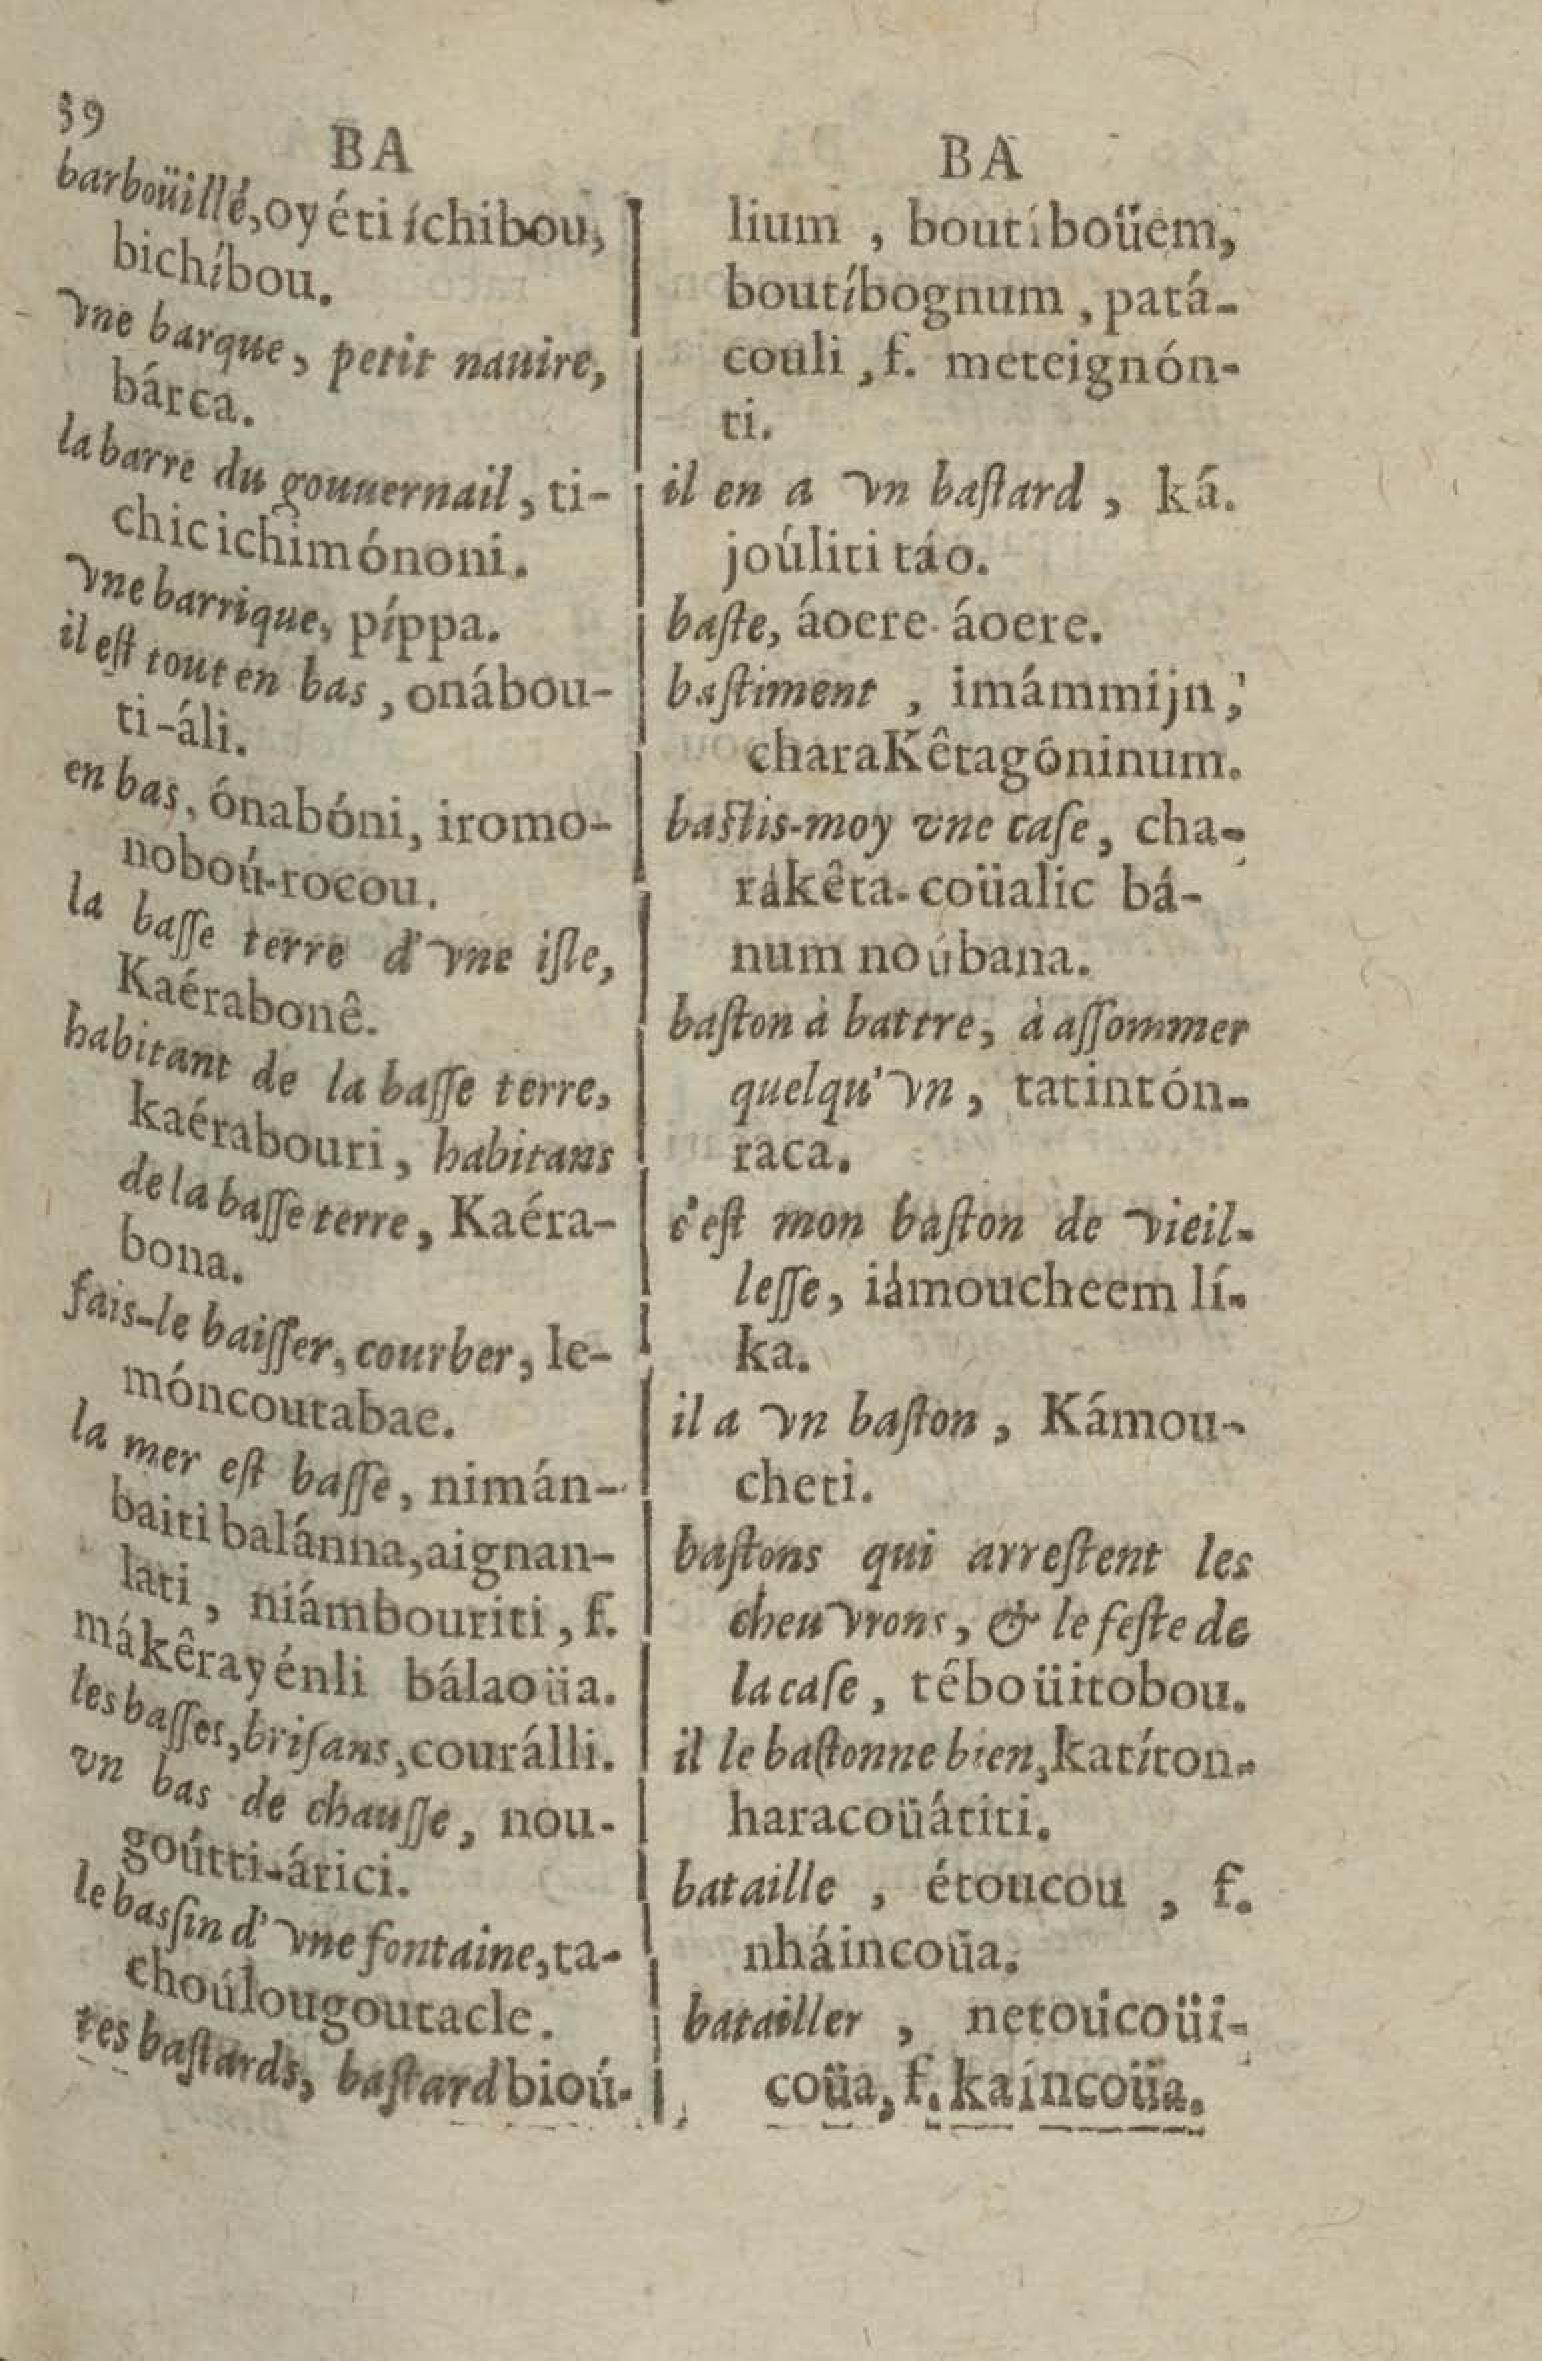 39
BA
barboüillé, oyéti íchibou,
bichíbou.
vne barque, petit nauire,
bárca.
la barre du gouuernail, ti-
chicichimónoni.
vne barrique, píppa.
il eſt tout en bas, onábou-
ti-áli.
en bas, ónabóni, iromo-
noboú-rocou.
la baſſe terre d'vne iſle,
Kaérabonê.
habitant de la baſſe terre,
kaérabouri, habitans
de la baſſe terre, Kaéra-
bona.
fais-le baiſſer, courber, le-
móncoutabae.
la mer eſt baſſe, nimán-
baiti balánna, aignan-
lati, niámbouriti, f.
mákêrayénli bálaoüa.
les baſſes, briſans, courálli.
vn bas de chauſſe, nou-
goútti-árici.
le baſſin d'vne fontaine, ta-
choúlougoutacle.
tes baſtards, baſtard bioú-
BA
lium, boutíboüem,
boutíbognum, patá-
couli, f. meteignón-
ti.
il en a vn baſtard, ká.
joúliti táo.
baſte, áoere áoere.
baſtiment, imámmijn,
charaKêtagóninum.
baſtis-moy vne caſe, cha-
rákêta-coüalic bá-
num noúbana.
baſton à battre, à aſſommer
quelqu'vn, tatintón-
raca.
c'eſt mon baſton de vieil-
leſſe, iámoucheem lí-
ka.
il a vn baſton, Kámou-
cheti.
baſtons qui arreſtent les
cheuvrons, & le feſte de
la caſe, téboüitobou.
il le baſtonne bien, katíton-
haracoüátiti.
bataille, étoucou, f.
nháincoüa.
batailler, netoúcoüi-
coüa, f. kaíncoüa.